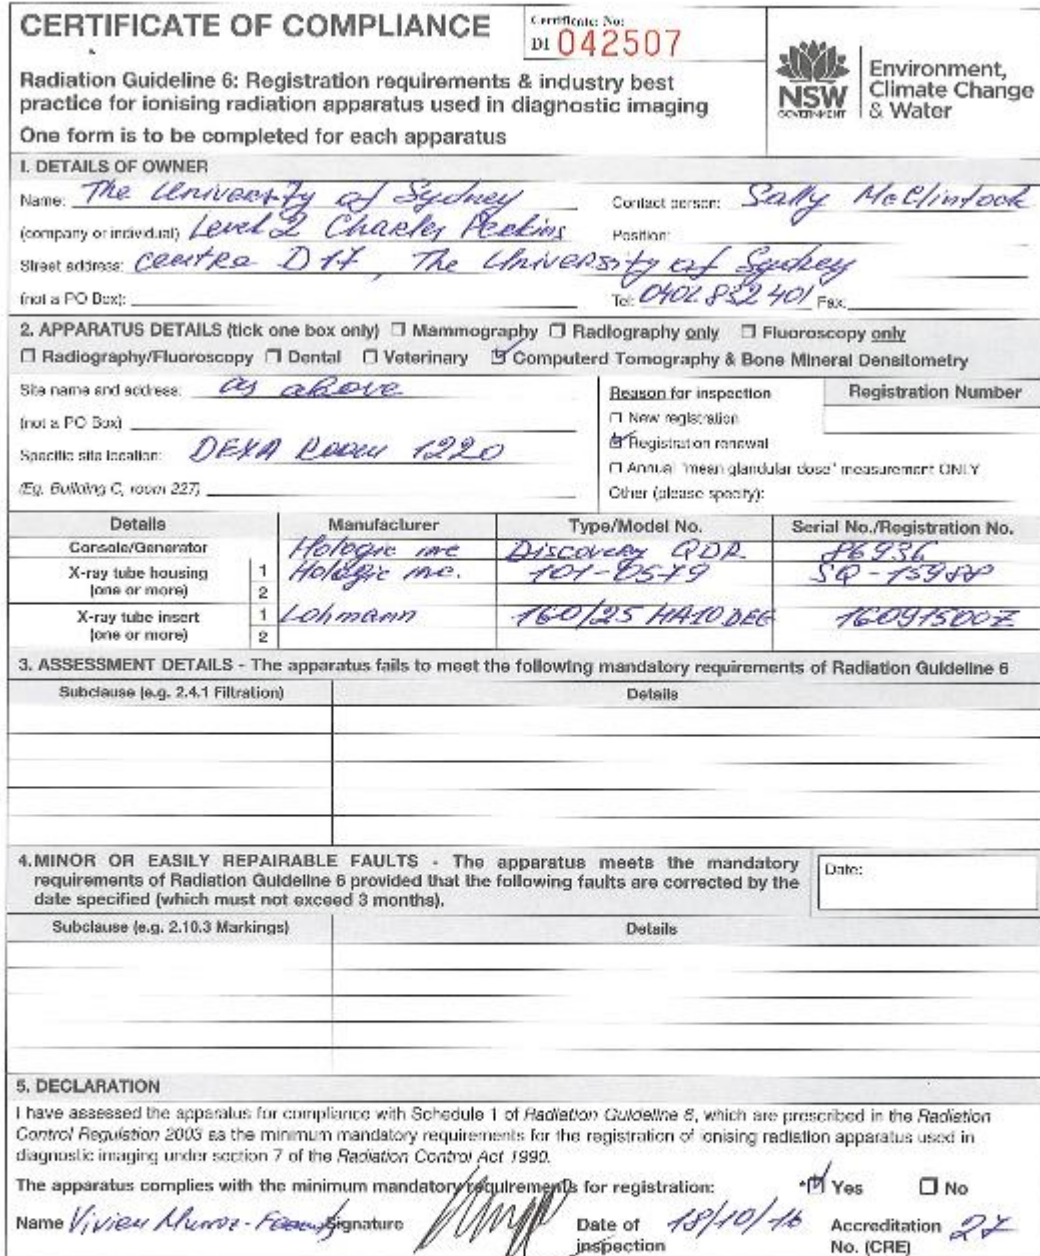 CERTIFICATE OF COMPLIANCE
Certificate No:
DI 042507
Radiation Guideline 6: Registration requirements & industry best
practice for ionising radiation apparatus used in diagnostic imaging
One form is to be completed for each apparatus
NSW
GOVERNMENT
Environment,
Climate Change
& Water
I. DETAILS OF OWNER
Name: The University of Sydney Contact person: Sally McClintock
(company or individual) Level 2 Charles Perkins Position:
Street address: Centre D17, The University of Sydney
(not a PO Box): Tel: 0402 832 401 Fax:
2. APPARATUS DETAILS (tick one box only) ☐ Mammography ☐ Radiography only ☐ Fluoroscopy only
☐ Radiography/Fluoroscopy ☐ Dental ☐ Veterinary ☑ Computerd Tomography & Bone Mineral Densitometry
Site name and address: as above
(not a PO Box)
Specific site location: DEXA Room 1220
(Eg. Building C, room 227)
Reason for inspection
☐ New registration
☑ Registration renewal
☐ Annual "mean glandular dose" measurement ONLY
Other (please specify):
Registration Number
Details Manufacturer Type/Model No. Serial No./Registration No.
Console/Generator Hologic inc Discovery QDR 86936
X-ray tube housing (one or more) 1 Hologic inc. 101-0579
2
X-ray tube insert (one or more) 1 Lohmann 160/25 HA10DEG
2
3. ASSESSMENT DETAILS - The apparatus fails to meet the following mandatory requirements of Radiation Guideline 6
Subclause (e.g. 2.4.1 Filtration) Details
4. MINOR OR EASILY REPAIRABLE FAULTS - The apparatus meets the mandatory
requirements of Radiation Guideline 6 provided that the following faults are corrected by the
date specified (which must not exceed 3 months).
Date:
Subclause (e.g. 2.10.3 Markings) Details
5. DECLARATION
I have assessed the apparatus for compliance with Schedule 1 of Radiation Guideline 6, which are prescribed in the Radiation
Control Regulation 2003 as the minimum mandatory requirements for the registration of ionising radiation apparatus used in
diagnostic imaging under section 7 of the Radiation Control Act 1990.
The apparatus complies with the minimum mandatory requirements for registration: ☑ Yes ☐ No
Name Vivien Signature Date of inspection 18/10/16 Accreditation No. (CRE) 27